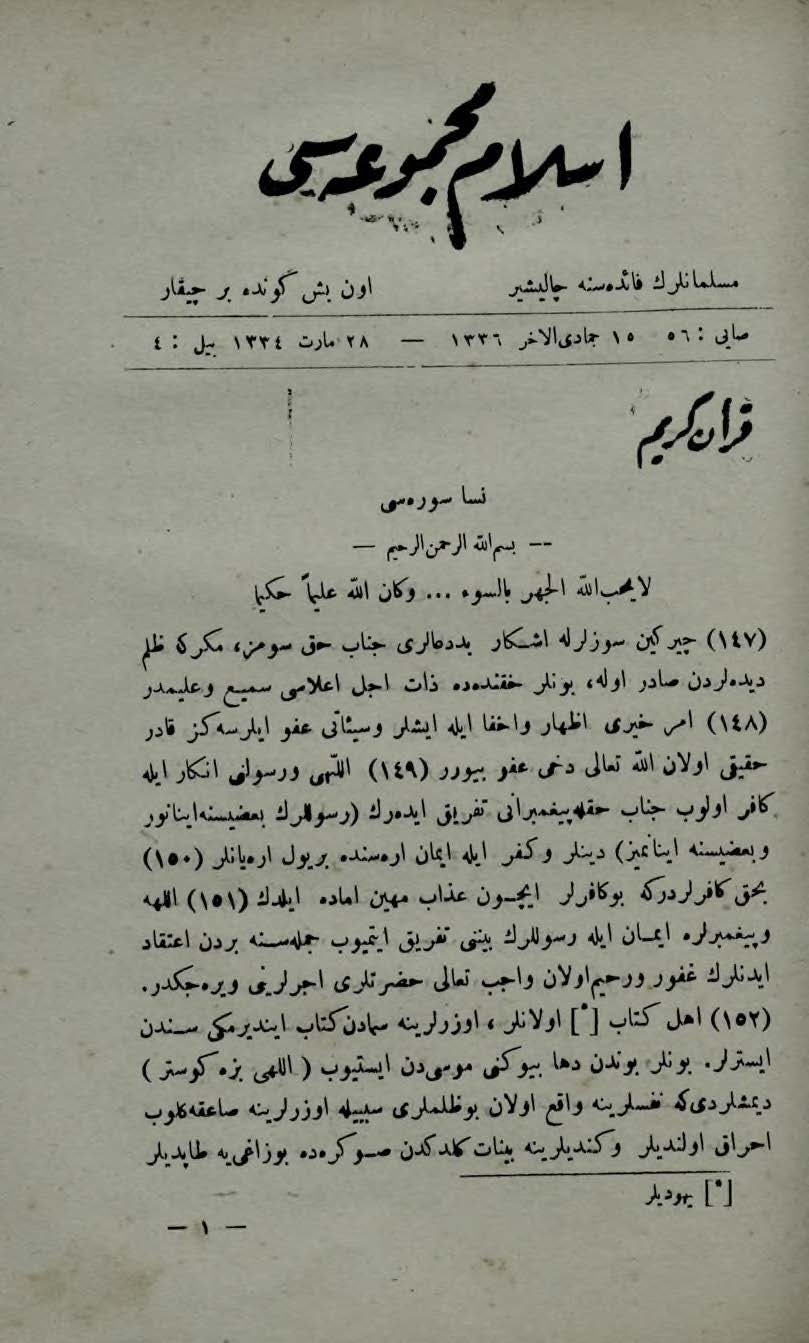 اسلام مجموعه‌سی
مسلمانلرك فائده‌سنه چالیشیر اون بش گونده بر چیقار
صایی : ٥٦ ١٥ جمادی‌الاخر ١٣٣٦ — ٢٨ مارت ١٣٣٤ ییل : ٤
قرآن كریم
نسا سوره‌سی
— بسم‌الله الرحمن‌الرحیم —
لایحب‌الله الجهر بالسوء ... وكان الله علیماً حكیما
(١٤٧) چیركین سوزلرله اشكار بددعالری جناب حق سومز، مكركه ظلم
دیده‌لردن صادر اوله، بونلر حقنده‌ده ذات اجل اعلاسی سمیع وعلیمدر
(١٤٨) امر خیری اظهار واخفا ایله ایشلر وسیئاتی عفو ایلرسه‌كز قادر
حقیقی اولان الله تعالی دخی عفو بیورر (١٤٩) اللهی ورسولنی انكار ایله
كافر اولوب جناب حقله‌پیغمبرانی تفریق ایده‌رك (رسوللرك بعضیسنه‌اینانور
وبعضیسنه اینانمیز) دینلر وكفر ایله ایمان اره‌سنده بریول اره‌یانلر (١٥٠)
بحق كافرلردركه بوكافرلر ایچون عذاب مهین اماده ایلدك (١٥١) اللهه
وپیغمبرلره ایمان ایله رسوللرك بیننی تفریق ایتمیوب جمله‌سنه بردن اعتقاد
ایدنلرك غفور ورحیم‌اولان واجب تعالی حضرتلری اجرلرینی ویره‌جكدر.
(١٥٢) اهل كتاب [*] اولانلر ، اوزرلرینه سمادن‌كتاب ایندیرمكی سندن
ایسترلر. بونلر بوندن دها بیوكنی موسی‌دن ایستیوب ( اللهی بزه كوستر )
دیمشلردی‌كه نفسلرینه واقع اولان بوظلملری سببیله اوزرلرینه صاعقه‌كلوب
احراق اولندیلر وكندیلرینه بینات كلدكدن صوكره‌ده بوزاغی‌یه طاپدیلر
[*] یهودیلر
— ١ —